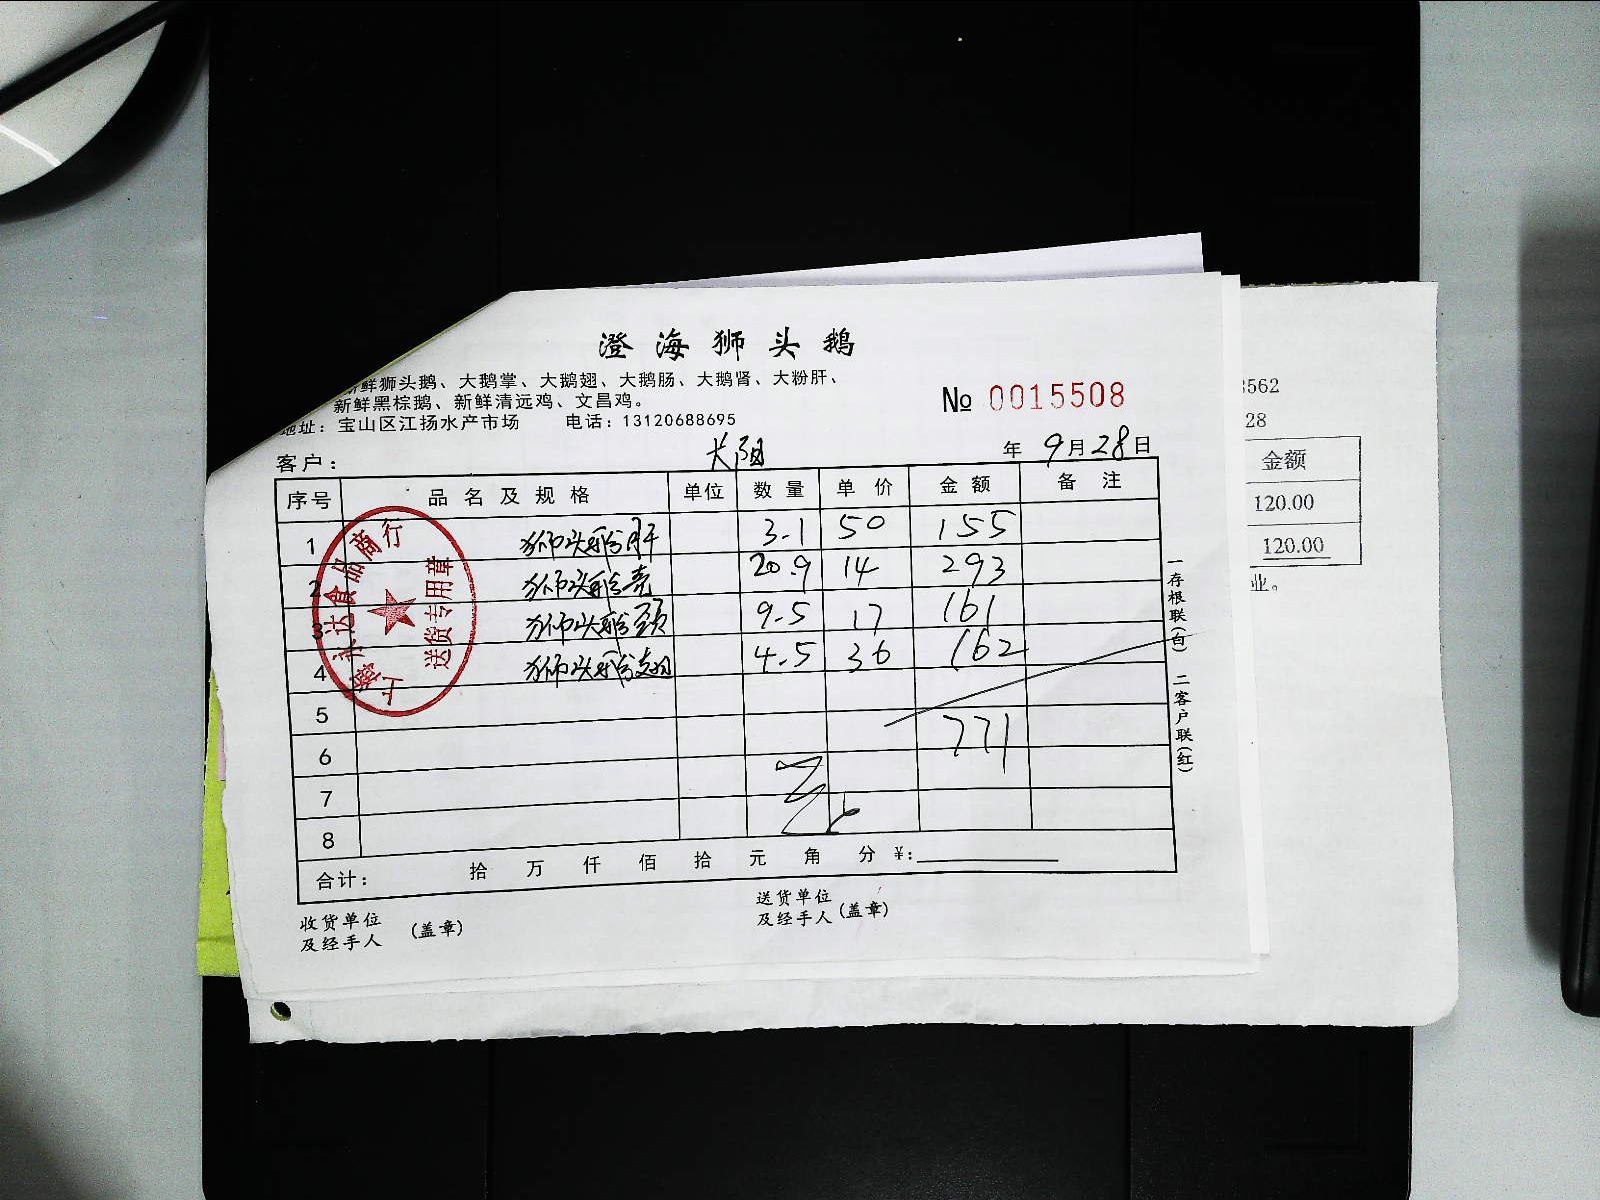 澄海狮头鹅
新鲜狮头鹅、大鹅掌、大鹅翅、大鹅肠、大鹅肾、大粉肝、
新鲜黑棕鹅、新鲜清远鸡、文昌鸡。
地址：宝山区江扬水产市场 电话：13120688695
№ 0015508
客户： 大阳 年 9月28日
序号 品名及规格 单位 数量 单价 金额 备注
1 狮头鹅肝 3.1 50 155
2 狮头鹅壳 20.9 14 293
3 狮头鹅頸 9.5 17 161
4 狮头鹅翅 4.5 36 162
5
6 771
7
8
合计： 拾 万 仟 佰 拾 元 角 分 ¥：
收货单位
及经手人 (盖章)
送货单位
及经手人 (盖章)
一存根联(白) 二客户联(红)
上海永达食品商行
送货专用章
3562
28
金额
120.00
120.00
业。